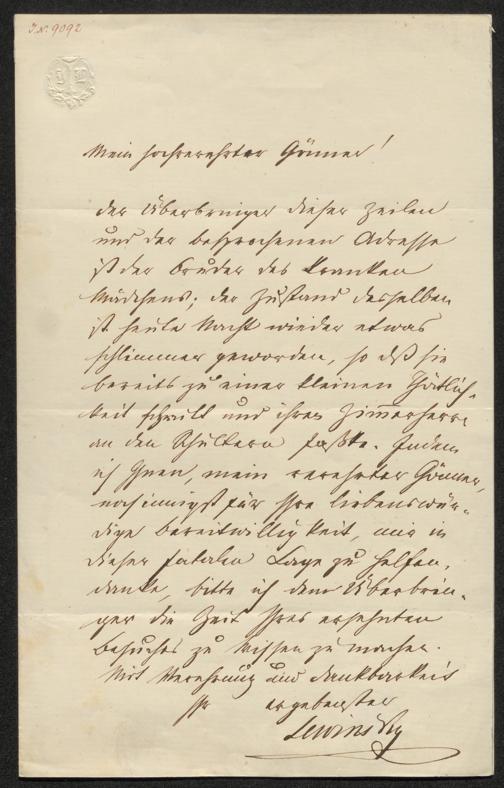 J.N. 9092
Mein hochverehrter Gönner!
der Überbringer dieser Zeilen
und der besprochenen Adresse
ist der Bruder des kranken
Mädchens; der Zustand desselben
ist heute Nacht wieder etwas
schlimmer geworden, so dß sie
bereits zu einer kleinen Thätlich-
keit schritt und ihren Zimmerherrn
an den Schultern faßte. Indem
ich Ihnen, mein verehrter Gönner,
nochinnigst für Ihre liebenswür-
dige Bereitwilligkeit, mir in
dieser fatalen Lage zu helfen,
danke, bitte ich dem Überbrin-
ger die Zeit Ihres ersehnten
Besuches zu wissen zu machen.
Mit Verehrung und Dankbarkeit
Ihr ergebenster
Lewinsky